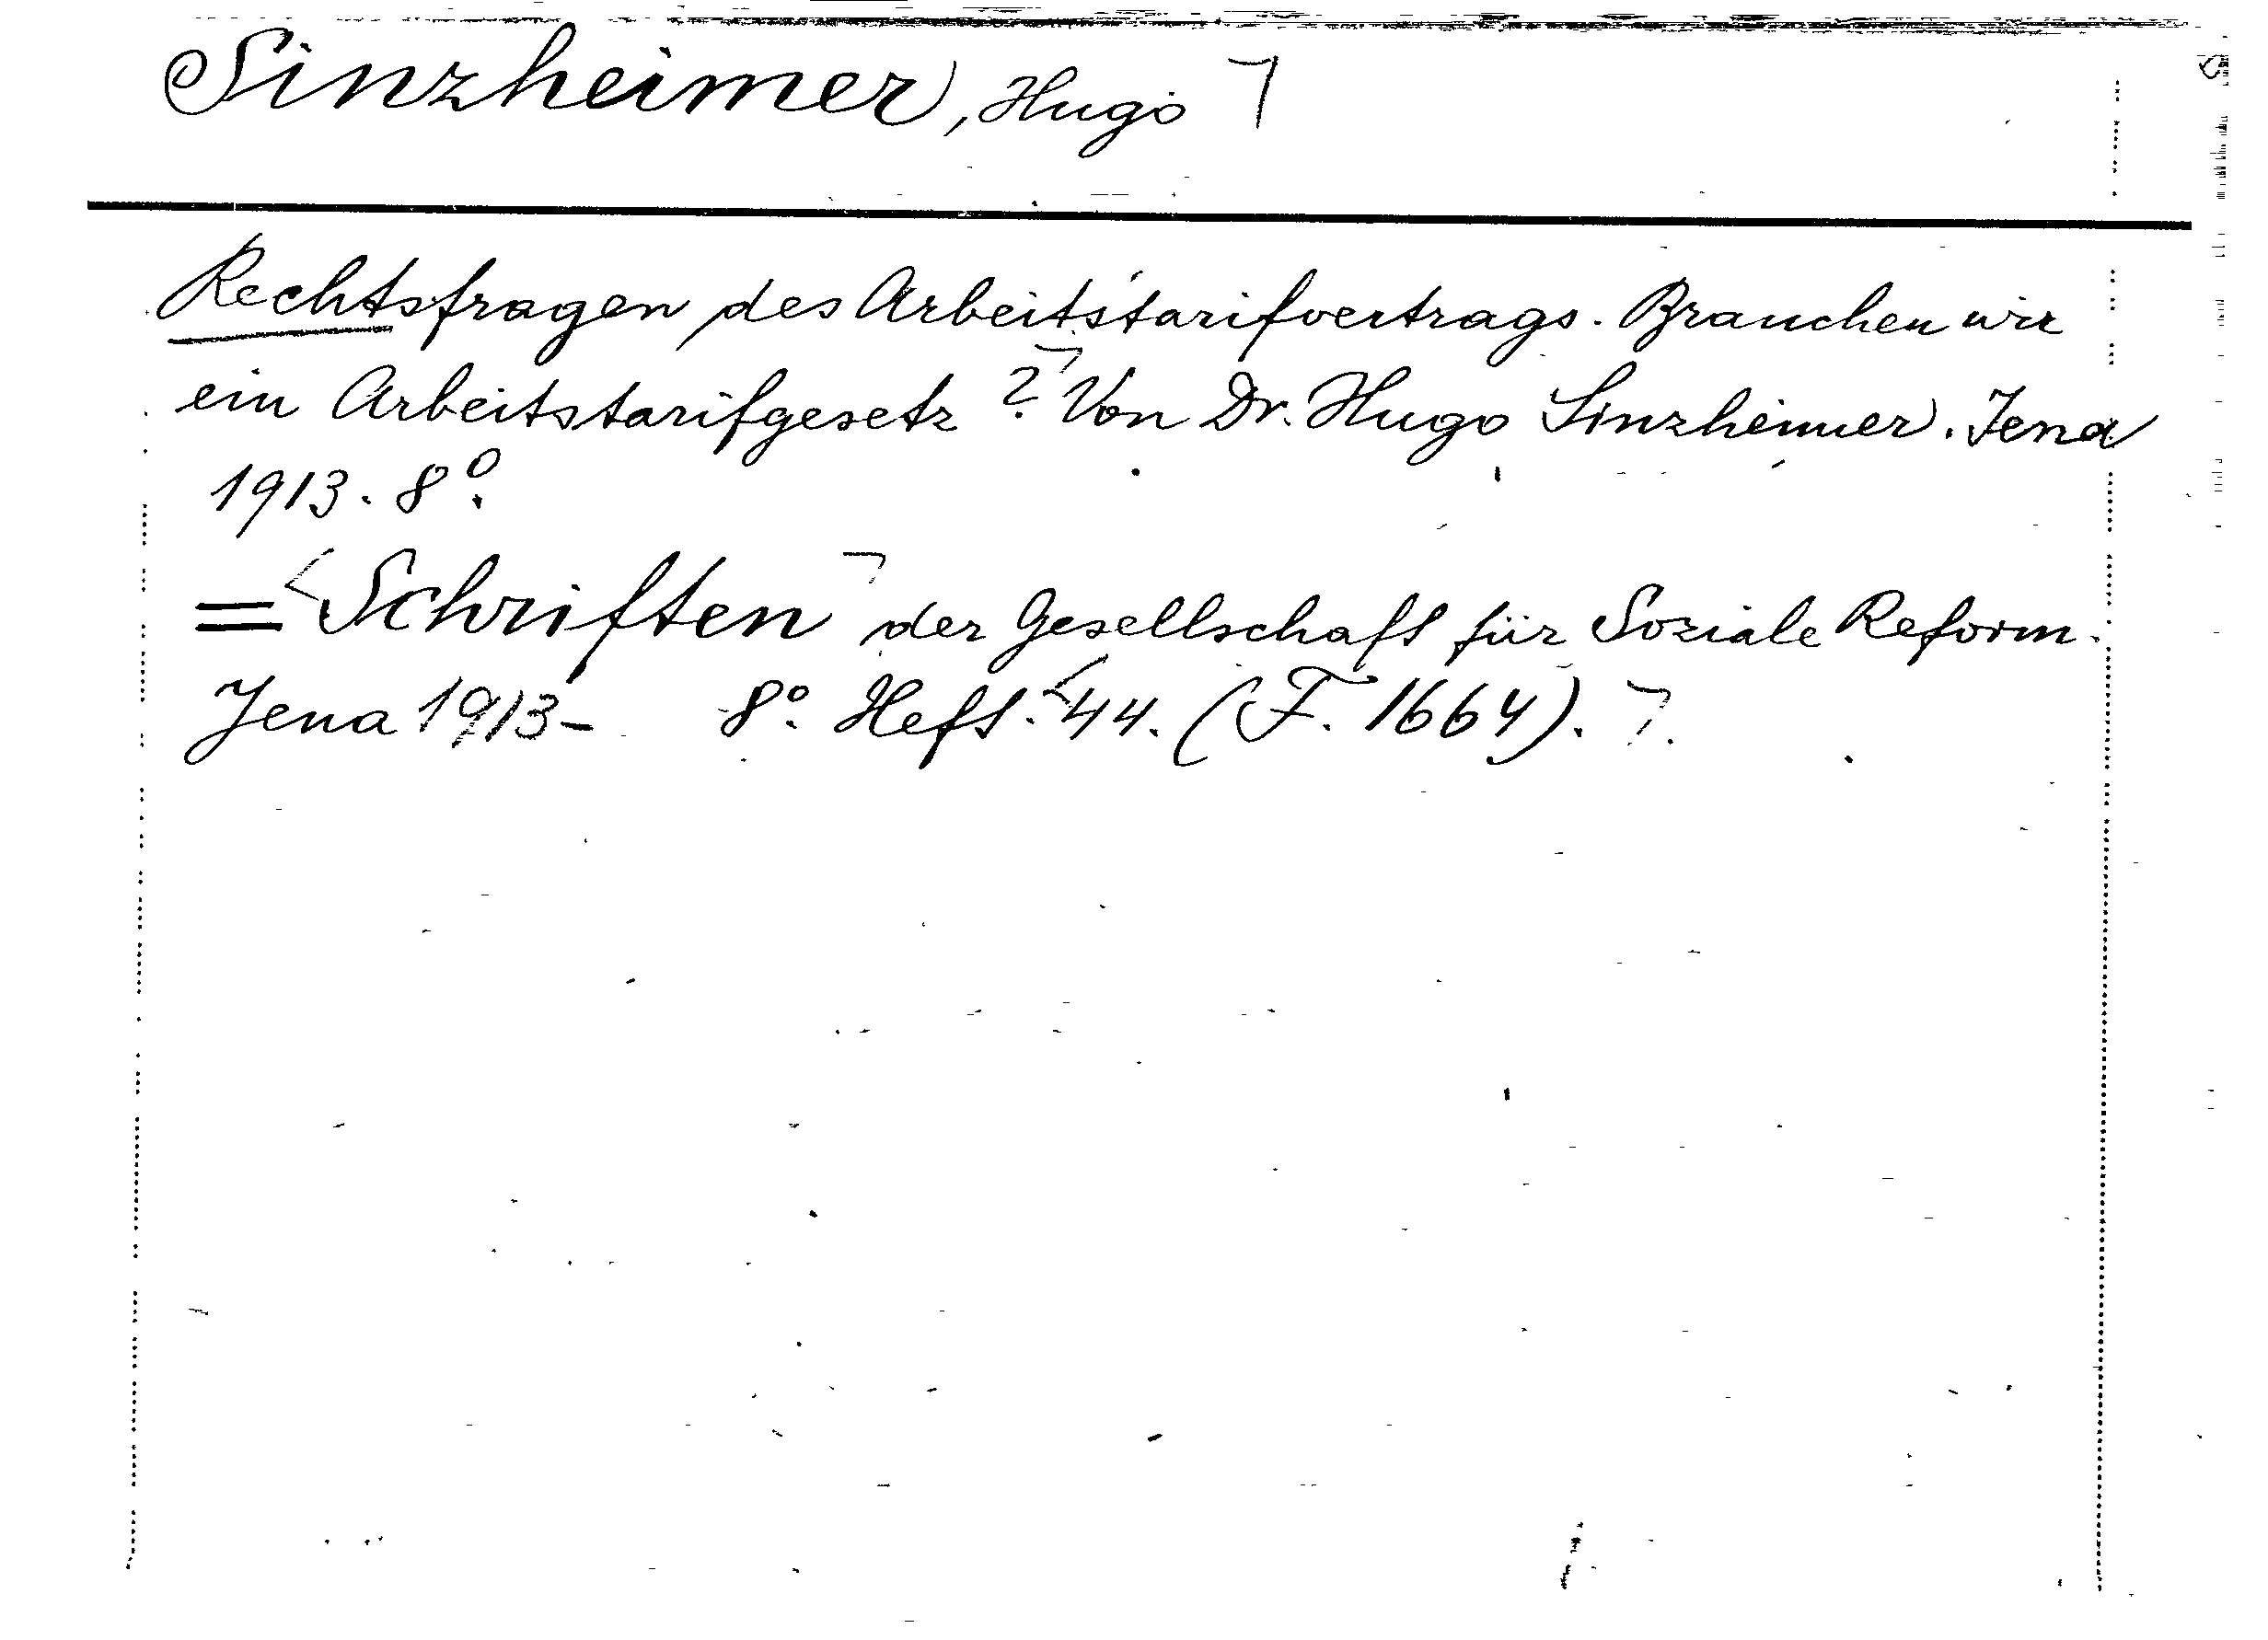 Sinzheimer, Hugo ⌉
Rechtsfragen des Arbeitstarifvertrags. Brauchen wir
ein Arbeitstarifgesetz?⌉ Von Dr. Hugo Sinzheimer. Jena
1913. 8°.
= <Schriften⌉ der Gesellschaft für Soziale Reform.
Jena 1913- 8°. Heft. <44. (F. 1664). ⌉.